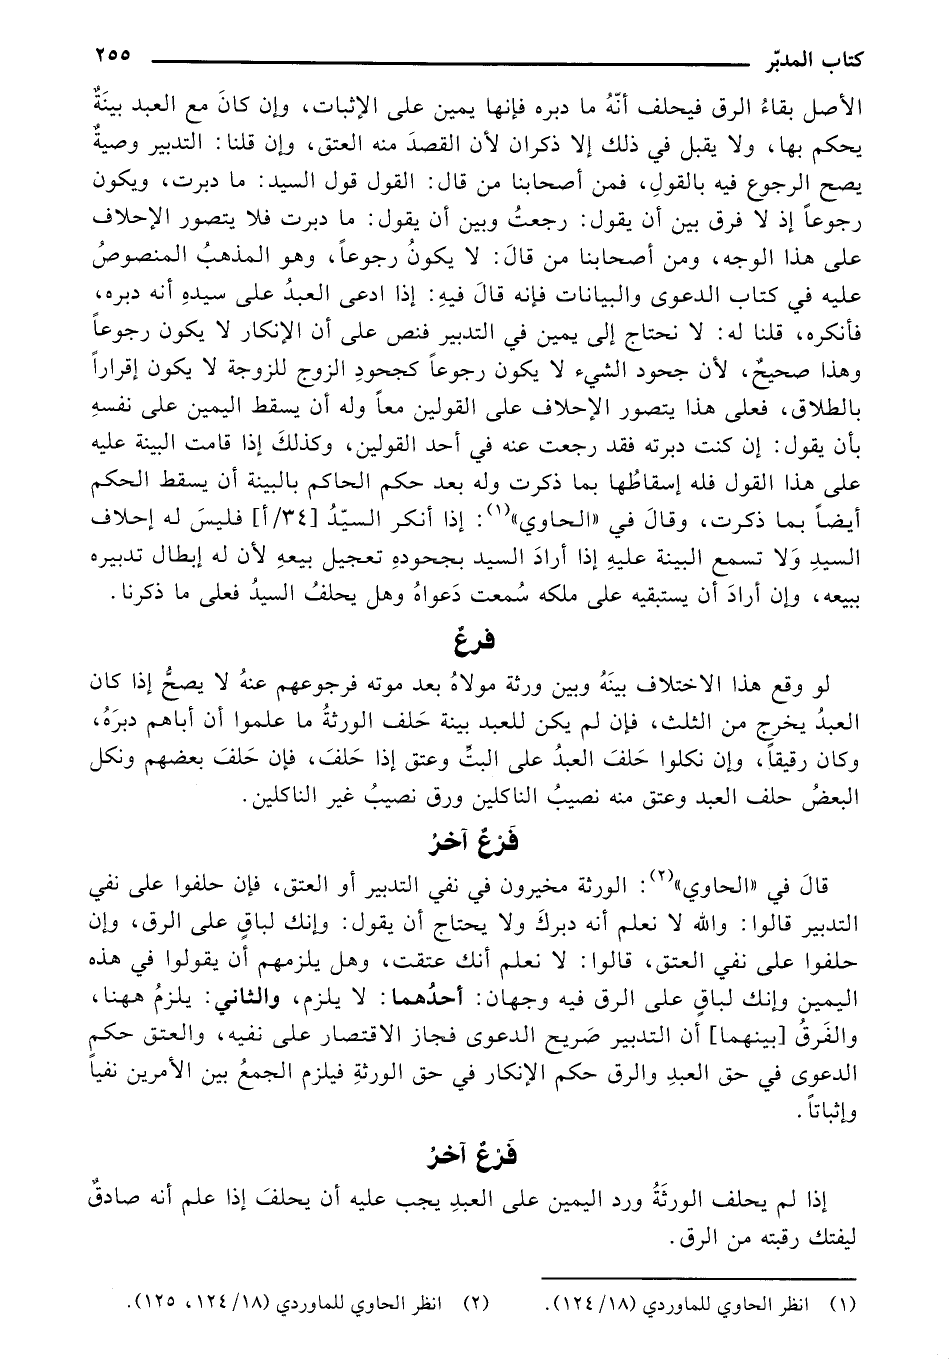 كتاب المدبّر ٢٥٥
الأصل بقاءُ الرق فيحلف أنّهُ ما دبره فإنها يمين على الإثبات، وإن كانَ مع العبد بينَةٌ
يحكم بها، ولا يقبل في ذلك إلا ذكران لأن القصدَ منه العتق، وإن قلنا: التدبير وصيةٌ
يصح الرجوع فيه بالقولِ، فمن أصحابنا من قال: القول قول السيد: ما دبرت، ويكون
رجوعاً إذ لا فرق بين أن يقول: رجعتُ وبين أن يقول: ما دبرت فلا يتصور الإحلاف
على هذا الوجه، ومن أصحابنا من قالَ: لا يكونُ رجوعاً، وهو المذهبُ المنصوصُ
عليه في كتاب الدعوى والبيانات فإنه قالَ فيهِ: إذا ادعى العبدُ على سيدهِ أنه دبره،
فأنكره، قلنا له: لا نحتاج إلى يمين في التدبير فنص على أن الإنكار لا يكون رجوعاً
وهذا صحيحٌ، لأن جحود الشيء لا يكون رجوعاً كجحودِ الزوج للزوجة لا يكون إقراراً
بالطلاق، فعلى هذا يتصور الإحلاف على القولين معاً وله أن يسقط اليمين على نفسهِ
بأن يقول: إن كنت دبرته فقد رجعت عنه في أحد القولين، وكذلكَ إذا قامت البينة عليه
على هذا القول فله إسقاطُها بما ذكرت وله بعد حكم الحاكم بالبينة أن يسقط الحكم
أيضاً بما ذكرت، وقالَ في «الحاوي»(١): إذا أنكر السيّدُ [٣٤/أ] فليسَ له إحلاف
السيدِ وَلا تسمع البينة عليهِ إذا أرادَ السيد بجحودهِ تعجيل بيعهِ لأن له إبطال تدبيره
ببيعه، وإن أرادَ أن يستبقيه على ملكه سُمعت دَعواهُ وهل يحلفُ السيدُ فعلى ما ذكرنا.
فرعٌ
لو وقع هذا الاختلاف بينَهُ وبين ورثة مولاهُ بعد موته فرجوعهم عنهُ لا يصحُّ إذا كان
العبدُ يخرج من الثلث، فإن لم يكن للعبد بينة حَلف الورثةُ ما علموا أن أباهم دبرَهُ،
وكان رقيقاً، وإن نكلوا حَلفَ العبدُ على البتِّ وعتق إذا حَلفَ، فإن حَلفَ بعضهم ونكل
البعضُ حلف العبد وعتق منه نصيبُ الناكلين ورق نصيبُ غير الناكلين.
فَرْعٌ آخرُ
قالَ في «الحاوي»(٢): الورثة مخيرون في نفي التدبير أو العتق، فإن حلفوا على نفي
التدبير قالوا: والله لا نعلم أنه دبركَ ولا يحتاج أن يقول: وإنك لباقٍ على الرق، وإن
حلفوا على نفي العتق، قالوا: لا نعلم أنك عتقت، وهل يلزمهم أن يقولوا في هذه
اليمين وإنك لباقٍ على الرق فيه وجهان: أحدُهما: لا يلزم، والثاني: يلزمُ ههنا،
والفَرقُ [بينهما] أن التدبير صَريح الدعوى فجاز الاقتصار على نفيه، والعتق حكم
الدعوى في حق العبدِ والرق حكم الإنكار في حق الورثةِ فيلزم الجمعُ بين الأمرين نفياً
وإثباتاً.
فَرْعٌ آخرُ
إذا لم يحلف الورثَةُ ورد اليمين على العبدِ يجب عليه أن يحلفَ إذا علم أنه صادقٌ
ليفتك رقبته من الرق.
(١) انظر الحاوي للماوردي (١٨/ ١٢٤). (٢) انظر الحاوي للماوردي (١٨/ ١٢٤، ١٢٥).